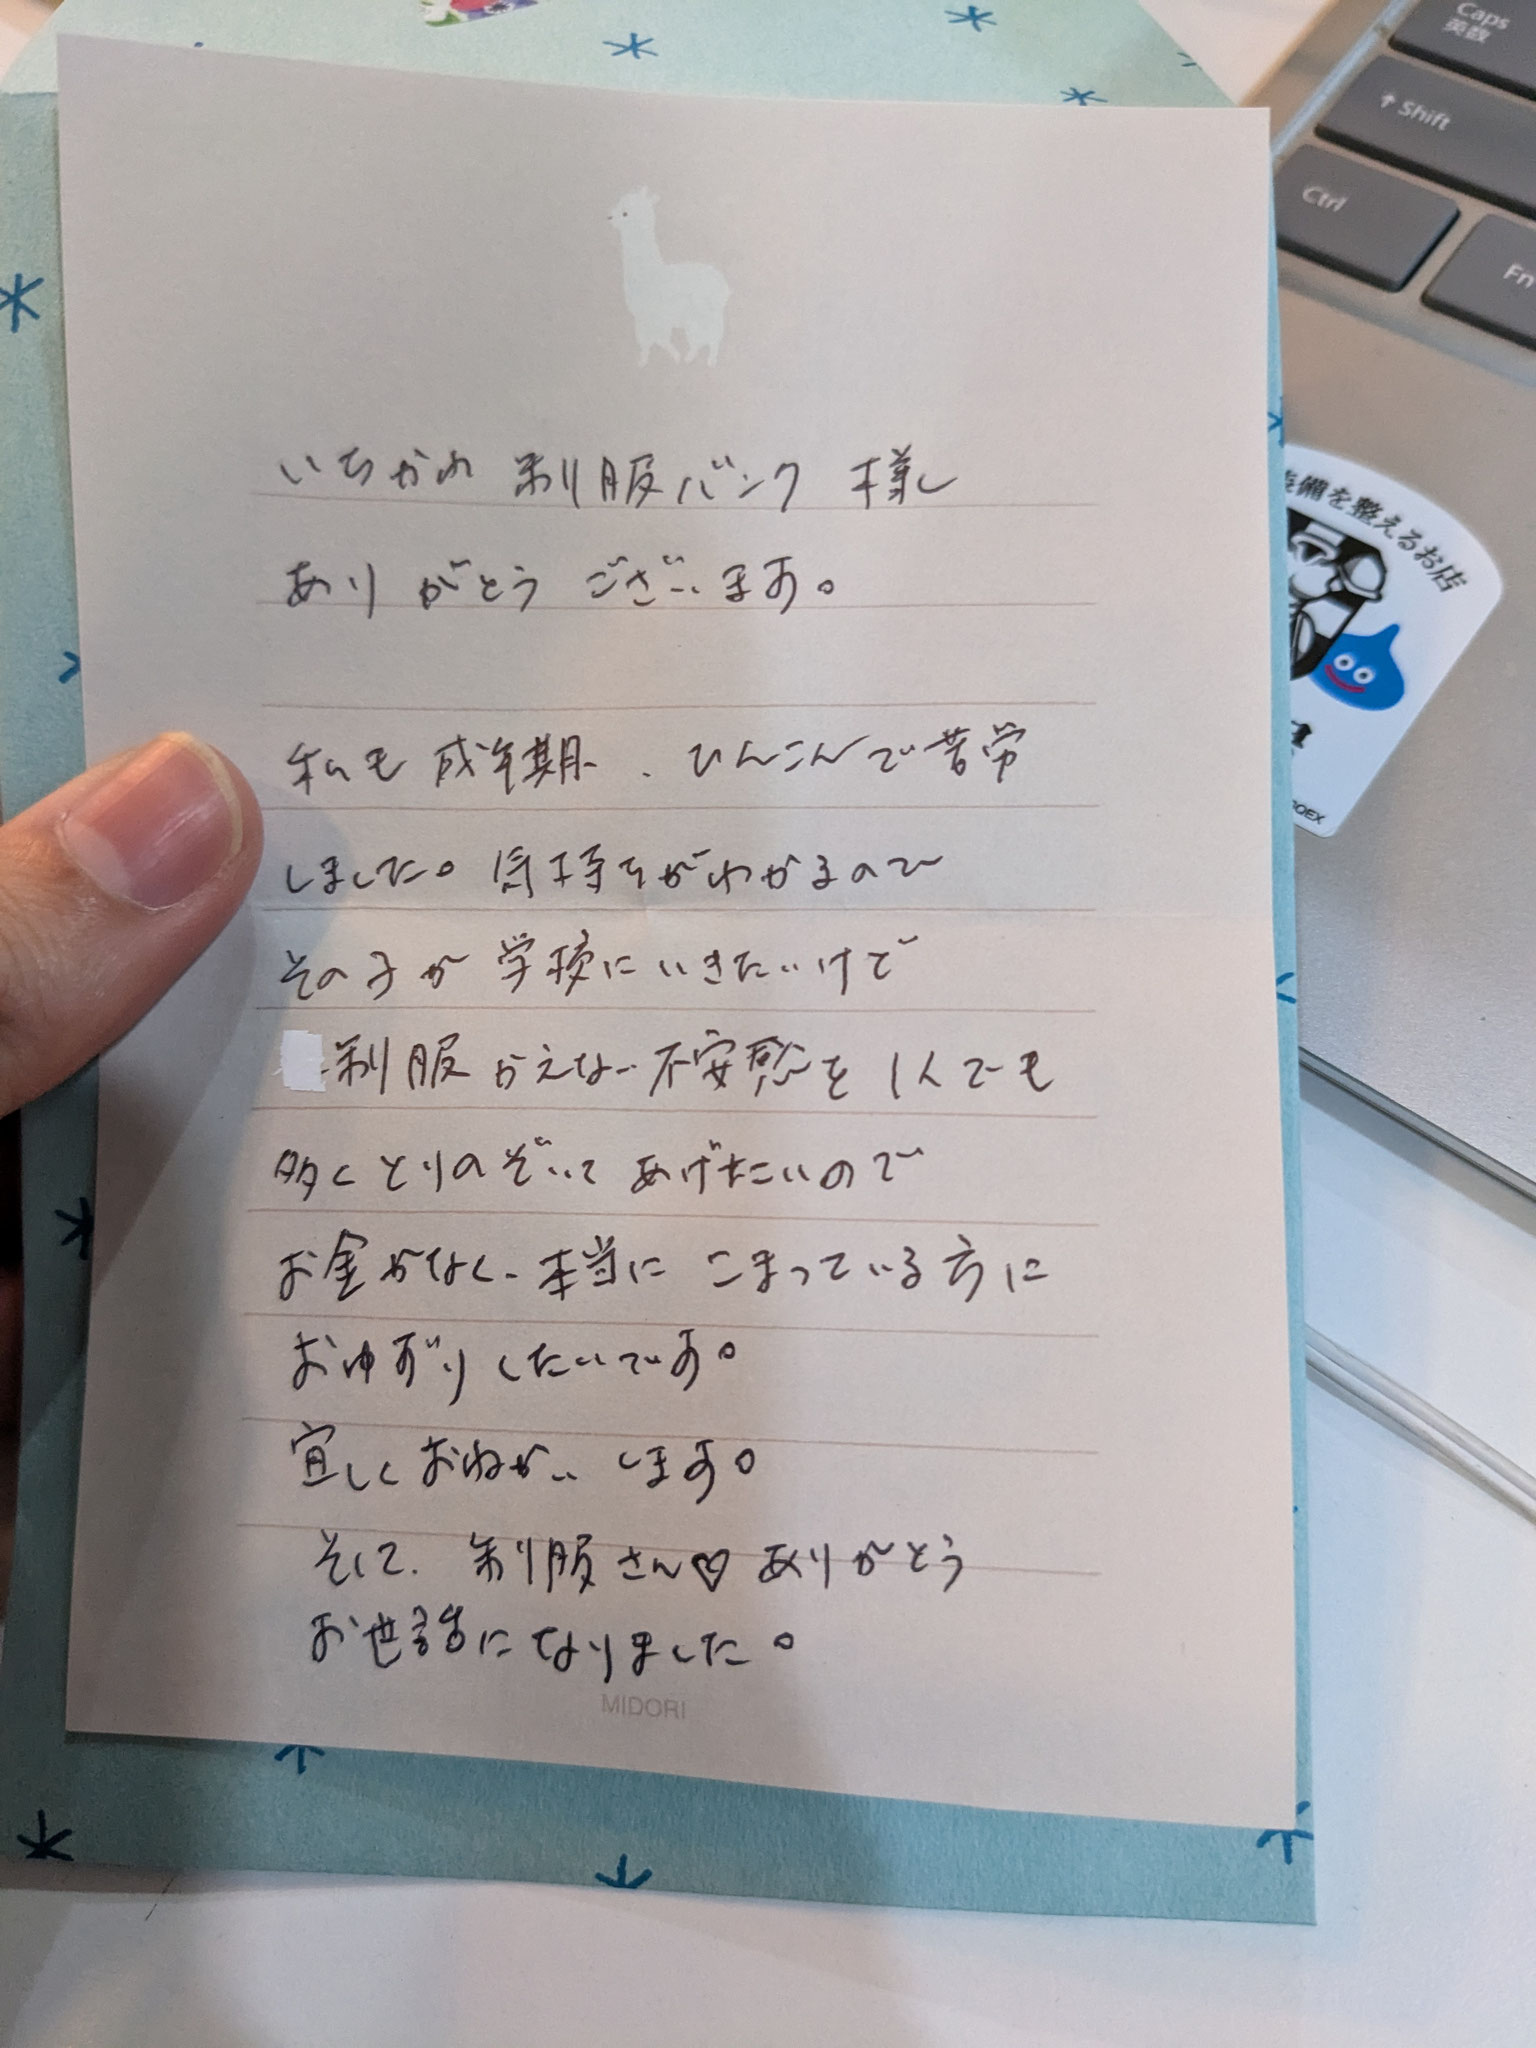 いちかわ 制服バンク 様
ありがとうございます。
私も成年期、ひんこんで苦労
しました。気持ちがわかるので
その子が学校にいきたいけど
制服かえない不安感を1人でも
多くとりのぞいてあげたいので
お金がなく、本当にこまっている方に
おゆずりしたいです。
宜しくおねがいします。
そして、制服さん♡ありがとう
お世話になりました。
MIDORI
Caps
英数
↑Shift
Ctrl
Fn
備を整えるお店